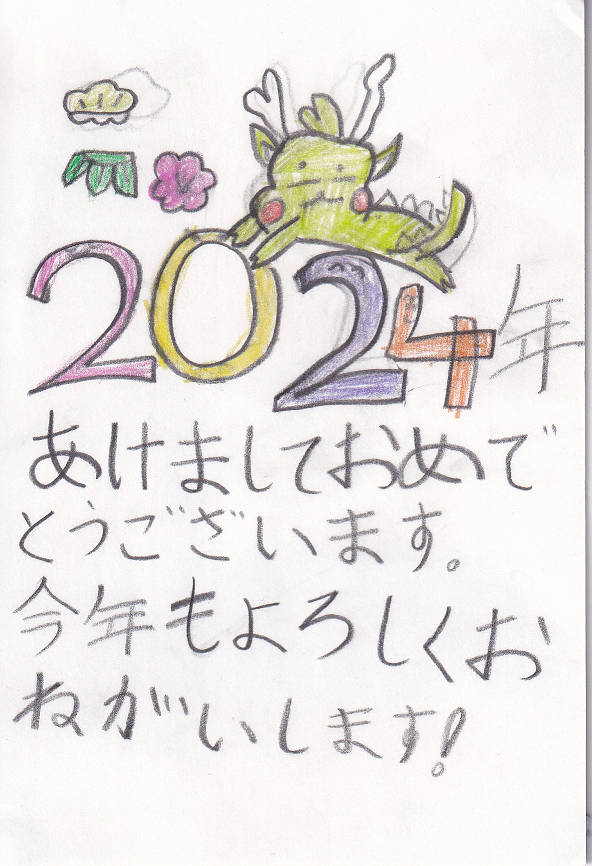 2024年
あけましておめで
とうございます。
今年もよろしくお
ねがいします!